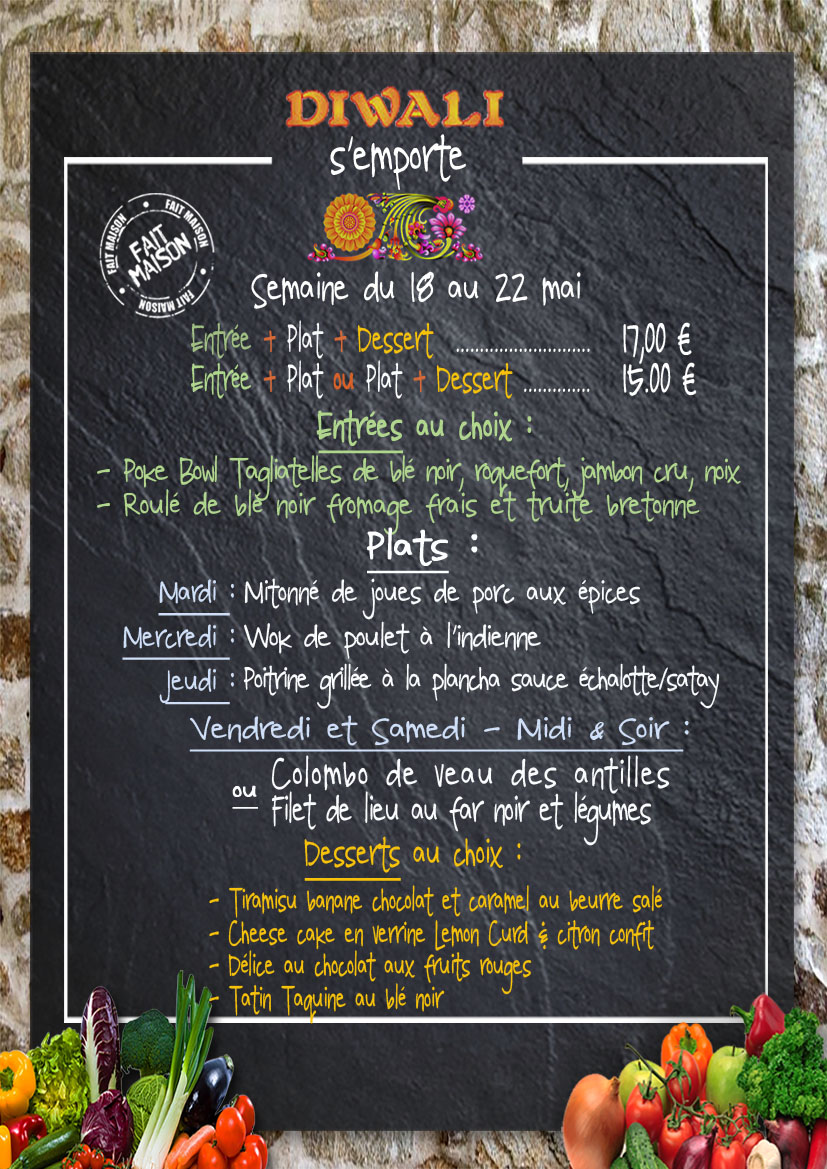 DIWALI
s'emporte
FAIT MAISON
FAIT MAISON
FAIT
MAISON
FAIT MAISON
Semaine du 18 au 22 mai
Entrée + Plat + Dessert ............................ 17,00 €
Entrée + Plat ou Plat + Dessert .............. 15.00 €
Entrées au choix :
- Poke Bowl Tagliatelles de blé noir, roquefort, jambon cru, noix
- Roulé de blé noir fromage frais et truite bretonne
Plats :
Mardi : Mitonné de joues de porc aux épices
Mercredi : Wok de poulet à l'indienne
Jeudi : Poitrine grillée à la plancha sauce échalotte/satay
Vendredi et Samedi - Midi & Soir :
Colombo de veau des antilles
ou
Filet de lieu au far noir et légumes
Desserts au choix :
- Tiramisu banane chocolat et caramel au beurre salé
- Cheese cake en verrine Lemon Curd & citron confit
- Délice au chocolat aux fruits rouges
- Tatin Taquine au blé noir